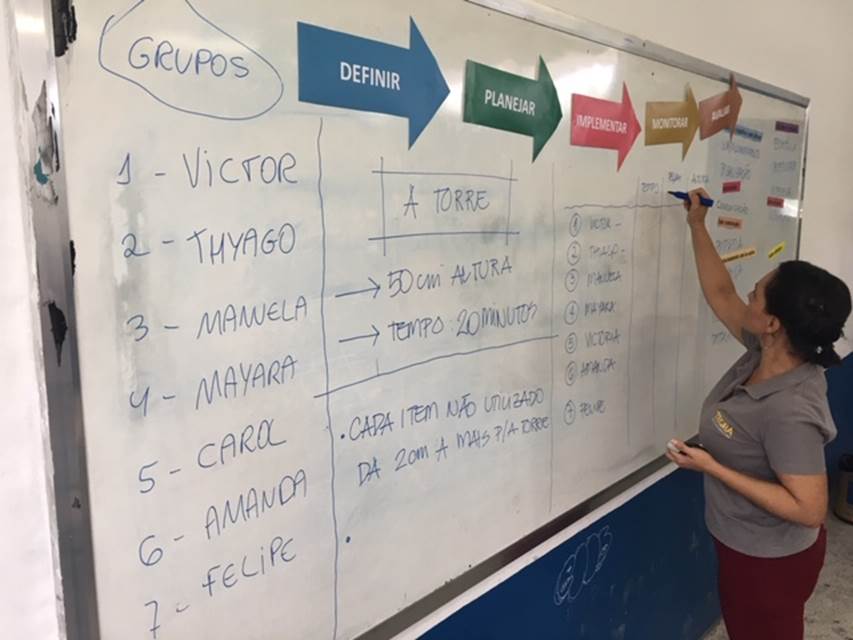 GRUPOS
DEFINIR
PLANEJAR
IMPLEMENTAR
MONITORAR
1 - VICTOR
2 - THYAGO
3 - MANUELA
4 - MAYARA
5 - CAROL
6 - AMANDA
7 - FELIPE
A TORRE
→ 50 cm ALTURA
→ TEMPO: 20 MINUTOS
• CADA ITEM NÃO UTILIZADO
DÁ 2cm A MAIS P/A TORRE
•
TEMPO
ALTURA
1 VICTOR -
2 THIAGO -
3 MANUELA
4 MAYARA
5 VICTORIA
6 AMANDA
7 FELIPE